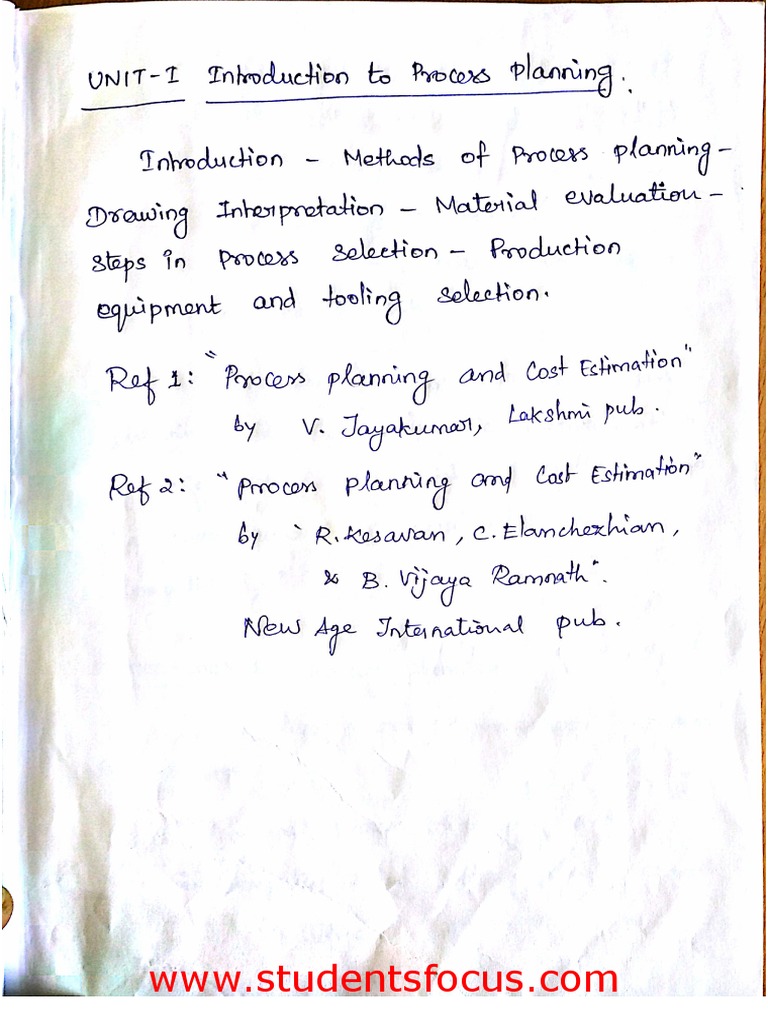 UNIT-I Introduction to Process Planning.
Introduction - Methods of Process planning -
Drawing Interpretation - Material evaluation -
steps in Process selection - Production
equipment and tooling selection.
Ref 1: "Process planning and Cost Estimation"
by V. Jayakumar, Lakshmi pub.
Ref 2: "Process planning and Cost Estimation"
by `R. Kesavan, C. Elanchezhian,
& B. Vijaya Ramnath".
New Age International pub.
www.studentsfocus.com